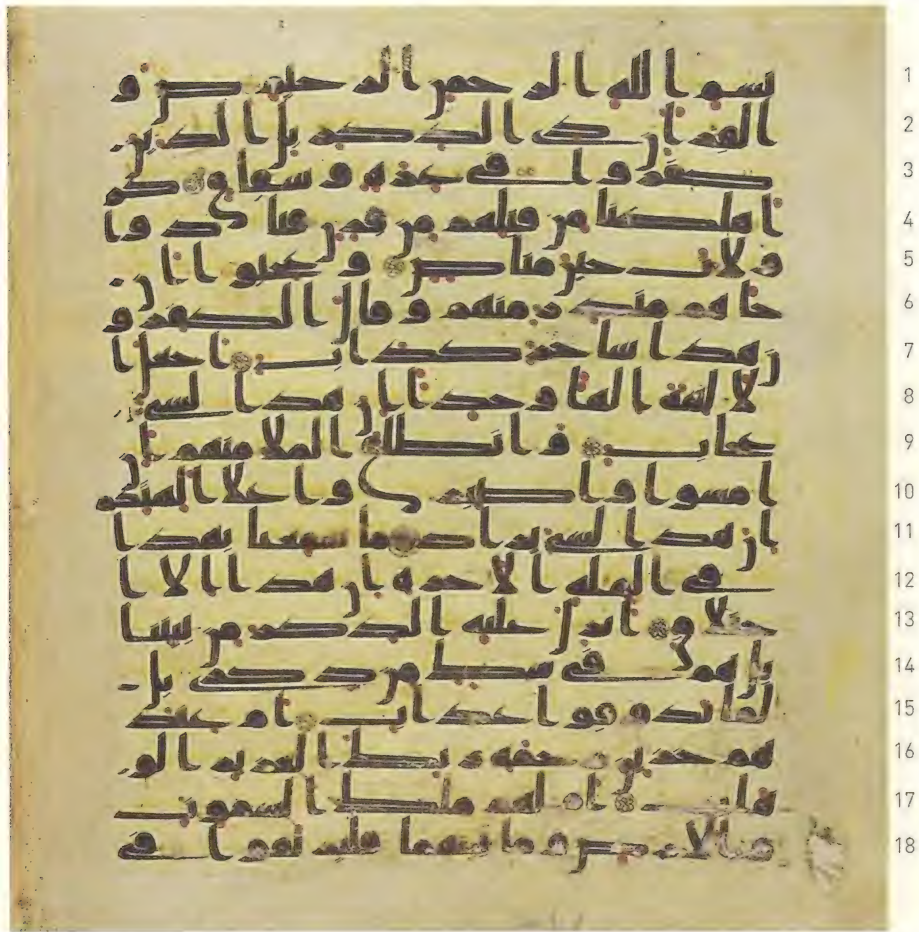 بسم الله الرحمن الرحيم ص و 1
القران ذي الذكر بل الذين 2
كفروا في عزة وشقاق كم 3
اهلكنا من قبلهم من قرن فنادوا 4
ولات حين مناص وعجبوا ان 5
جاهم منذر منهم وقال الكفرو 6
ن هذا ساحر كذاب اجعل ا 7
لالهة الها وحدا ان هذا لشي 8
عجاب وانطلق الملا منهم ان 9
امشوا واصبروا على الهتكم 10
ان هذا لشي يراد ما سمعنا بهذا 11
في الملة الاخرة ان هذا الا ا 12
ختلاق انزل عليه الذكر من بيننا 13
بل هم في شك من ذكري بل 14
لما يذوقوا عذاب ام عند 15
هم خزاين رحمة ربك العزيز الو 16
هاب ام لهم ملك السموت 17
والارض وما بينهما فليرتقوا في 18